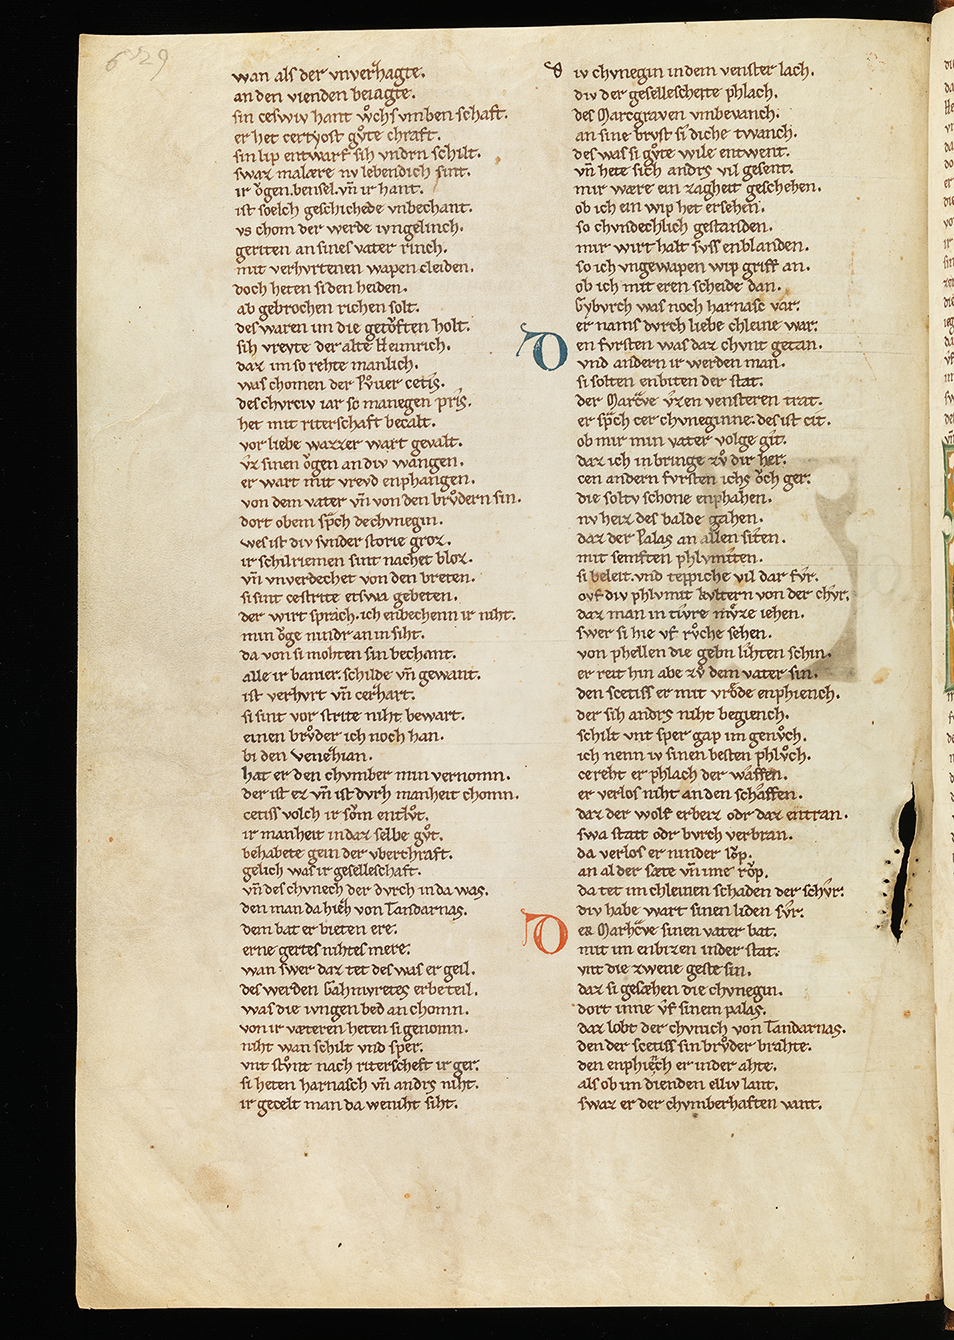 629
wan als der vnverhagte.
an den vienden beiagte.
sin ceswiv hant wͦchs vmben schaft.
er het certyost gvͦte chraft.
sin lip entwarf sih vndrn schilt.
swaz malære nv lebendich sint.
ir oͮgen.bensel.vn̄ ir hant.
ist soelch geschichede vnbechant.
vs chom der werde ivngelinch.
geriten an sines vater rinch.
mit verhvrtenen wapen cleiden.
doch heten si den heiden.
ab gebrochen richen solt.
des waren im die getoͮften holt.
sih vrevte der alte Heimrich.
daz im so rehte manlich.
was chomen der pͦver cetis.
des chvrciv iar so manegen pris.
het mit riterschaft becalt.
vor liebe wazzer wart gevalt.
vz sinen oͮgen an div wangen.
er wart mit vrevd enphangen.
von dem vater vn̄ von den brvͦdern sin.
dort obem sp̄ch de chvnegin.
wes ist div svnder storie groz.
ir schilriemen sint nachet bloz.
vn̄ vnverdechet von den breten.
si sint cestrite etswa gebeten.
der wirt sprach.ich enbechenn ir niht.
min oͮge nindr an in siht.
da von si mohten sin bechant.
alle ir banier.schilde vn̄ gewant.
ist verhvrt vn̄ cerhart.
si sint vor strite niht bewart.
einen brvͦder ich noch han.
bi den venehian.
hat er den chvmber min vernomn.
der ist ez vn̄ ist dvrh manheit chomn.
cetiss volch ir soͮm entlvͦt.
ir manheit in daz selbe gvͦt.
behabete gein der vberchraft.
gelich was ir geselleschaft.
vn̄ des chvnech der dvrch in da was.
den man da hieh von Tandarnas.
dem bat er bieten ere.
erne gertes nihtes mere.
wan swer daz tet des was er geil.
des werden Gahmvretes erbeteil.
was die ivngen bed an chomn.
von ir væteren heten si genomn.
niht wan schilt vnd sper.
vnt stvͦnt nach riterscheft ir ger.
si heten harnasch vn̄ andrs niht.
ir gecelt man da weniht siht.
div chvnegin in dem venster lach.
div der gesellescheffte phlach.
des Marcgraven vmbevanch.
an sine brvst si diche twanch.
des was si gvͦte wile entwent.
vn̄ hete sich andrs vil gesent.
mir wære ein zagheit geschehen.
ob ich ein wip het ersehen.
so chvndechlich gestanden.
mir wirt halt svss enblanden.
so ich vngewapen wip griff an.
ob ich mit eren scheide dan.
Gybvrch was noch harnasc var.
er nams dvrch liebe chleine war.
Den fvrsten was daz chvnt getan.
vnd andern ir werden man.
si solten enbiten der stat.
der Marcve vzen vensteren trat.
er sp̄ch cer chvneginne.des ist cit.
ob mir min vater volge git.
daz ich in bringe zvͦ dir her.
cen andern fvrsten ichs oͮch ger.
die soltv schone enphahen.
nv heiz des balde gahen.
daz der Palas an allen siten.
mit semften phlvmiten.
si beleit.vnd teppiche vil dar fvr.
ovf div phlvmit kvltern von der chvr.
daz man in tivre mvͦze iehen.
swer si hie vf rvͦche sehen.
von phellen die gebn lihten schin.
er reit hin abe zvͦ dem vater sin.
den scetiss er mit vroͤde enphiench.
der sih andrs niht begiench.
schilt vnt sper gap im genvͦch.
ich nenn iv sinen besten phlvͦch.
ce reht er phlach der waffen.
er verlos niht an den schaffen.
daz der wolf erbeiz odr daz entran.
swa statt odr bvrch verbran.
da verlos er ninder loͮp.
an al der sæte vn̄ ime roͮp.
da tet im chleinen schaden der schvr.
div habe wart sinen liden svr.
Der Marhcve sinen vater bat.
mit im enbizen inder stat.
vnt die zwene geste sin.
daz si gesæhen die chvnegin.
dort inne vf sinem palas.
daz lobt der chvnich von Tandarnas.
den der scetiss sin brvͦder brahte.
den enphiech er in der ahte.
als ob im dienden elliv lant.
swaz er der chvmberhaften vant.